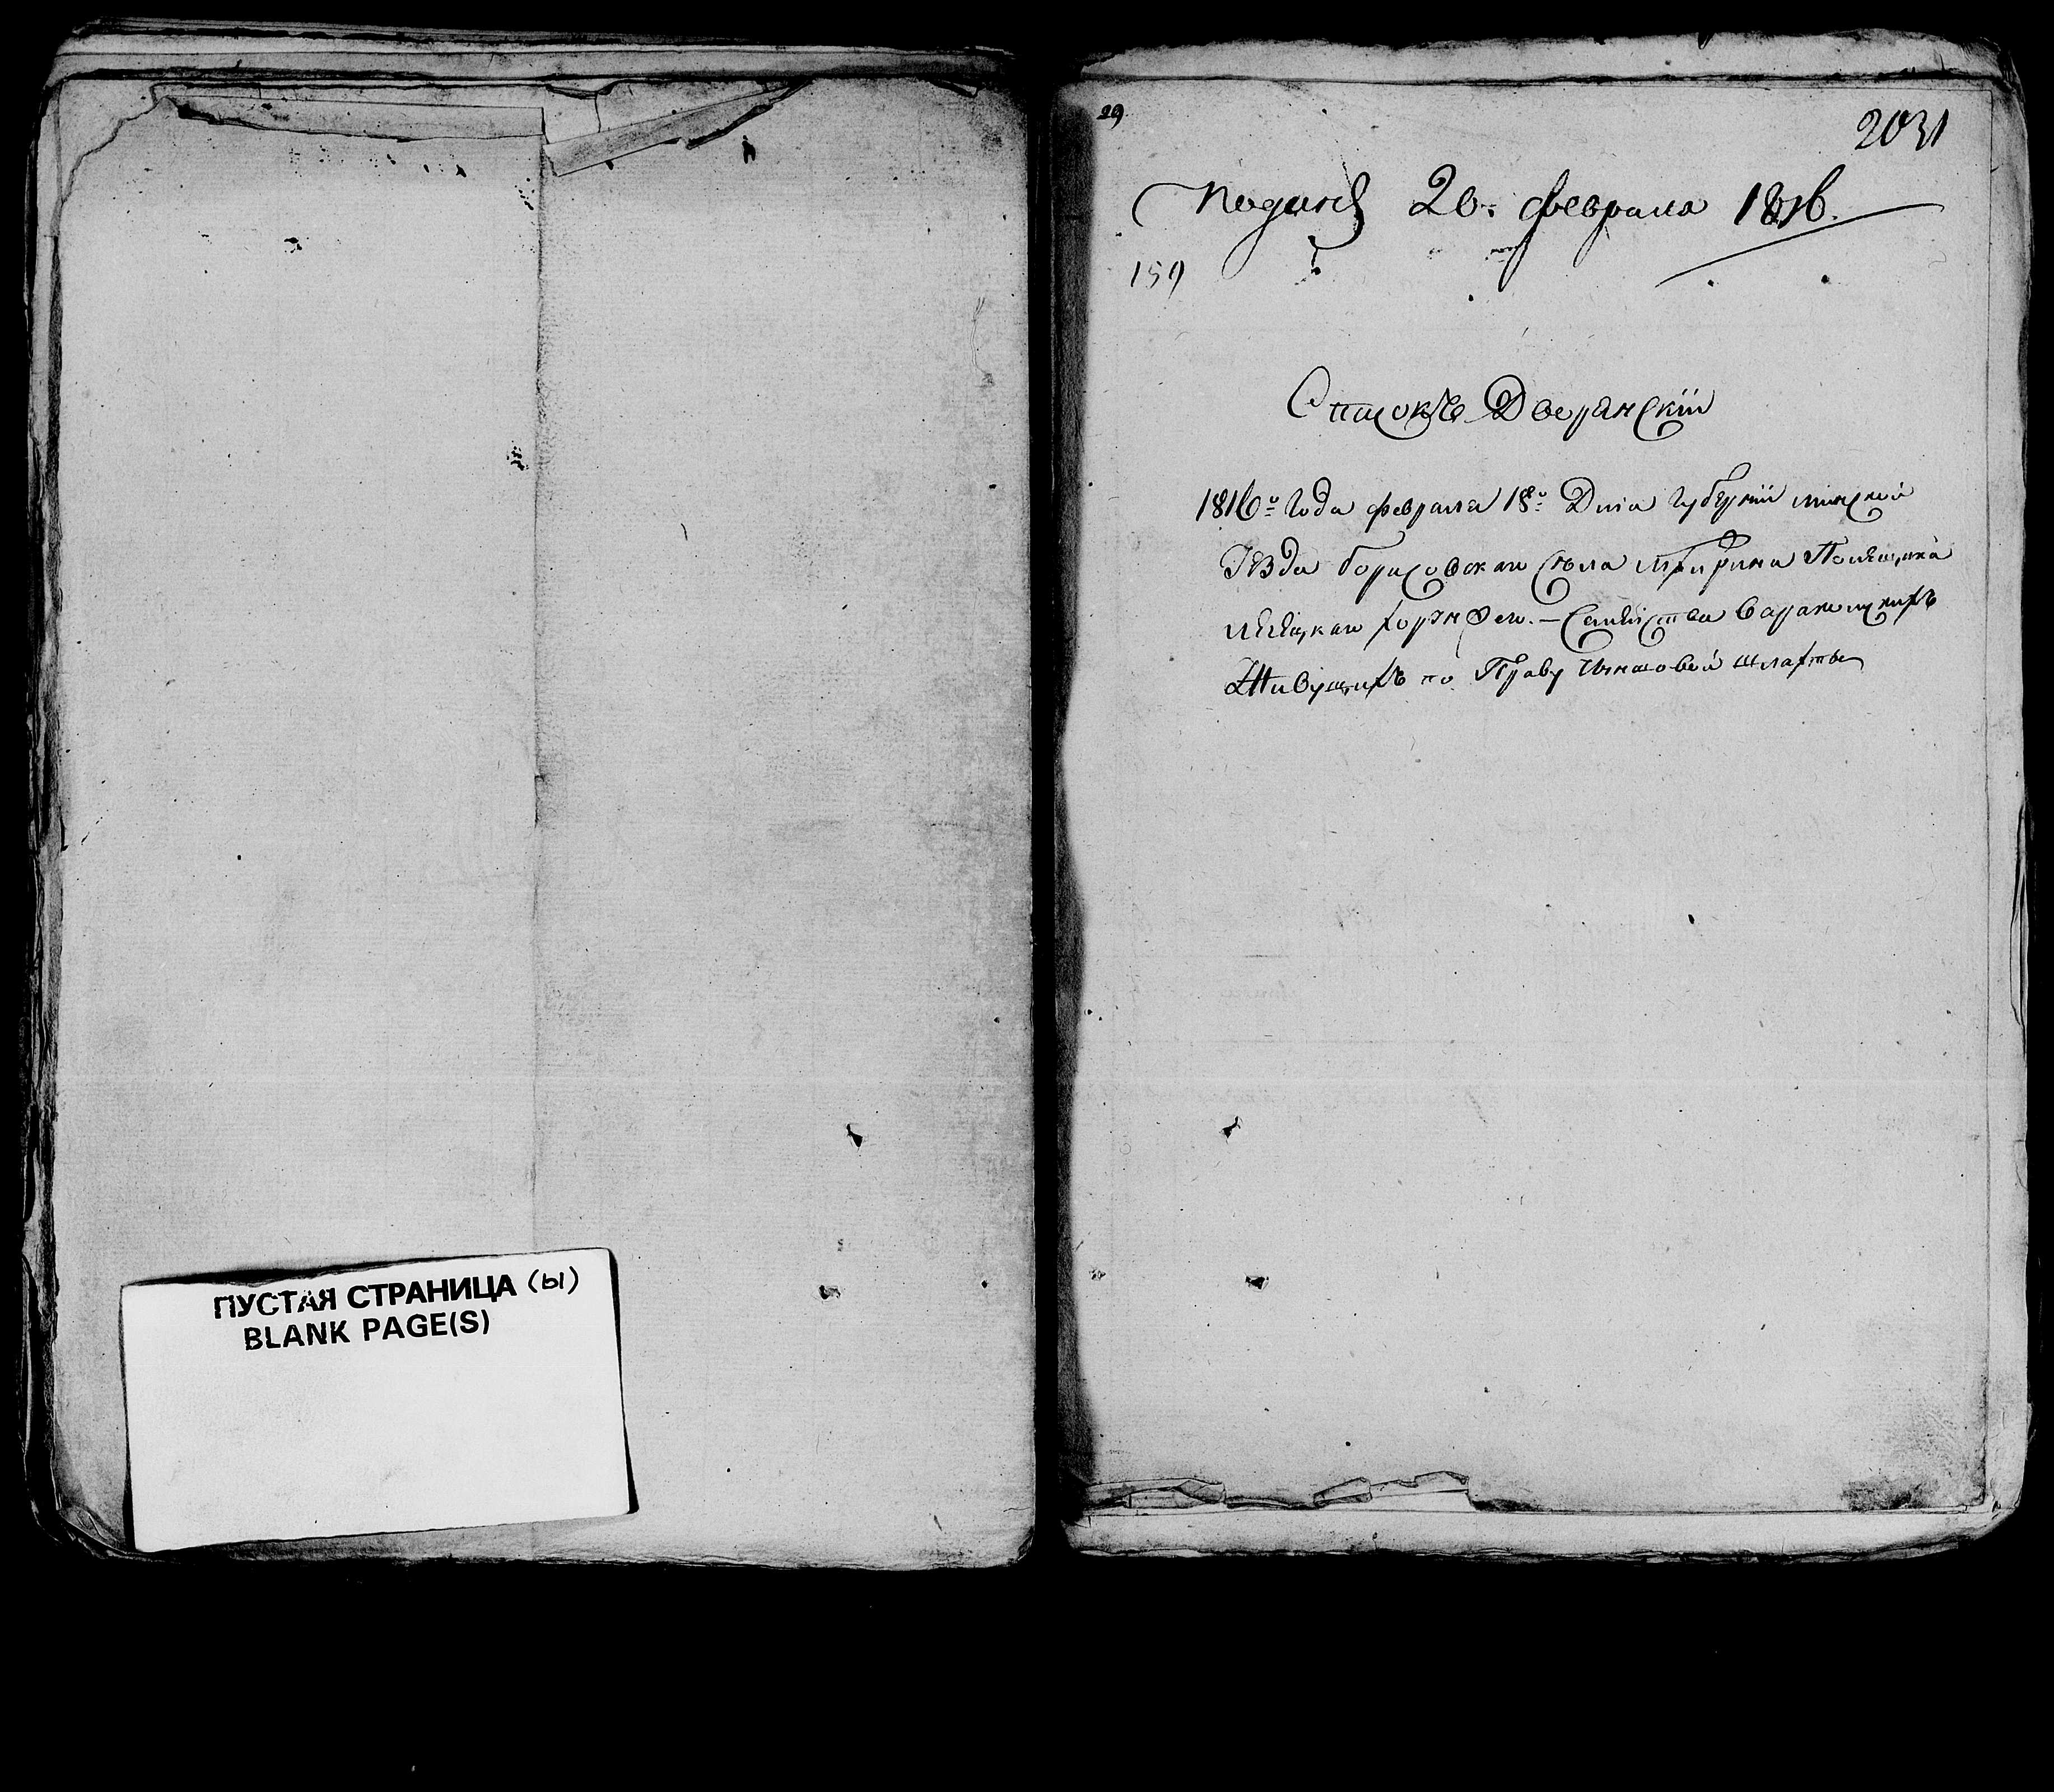 ПУСТАЯ СТРАНИЦА (ы)
BLANK PAGE(S)
29
2031
Поданъ 20. февраля 1816.
159
Списокъ Дворянскій
1816го Года февраля 18го Дня Губерніи минской
уѣзда борисовскаго села Помѣщика
Семѣйства
Живущихъ по Праву Чиншовой шляхты